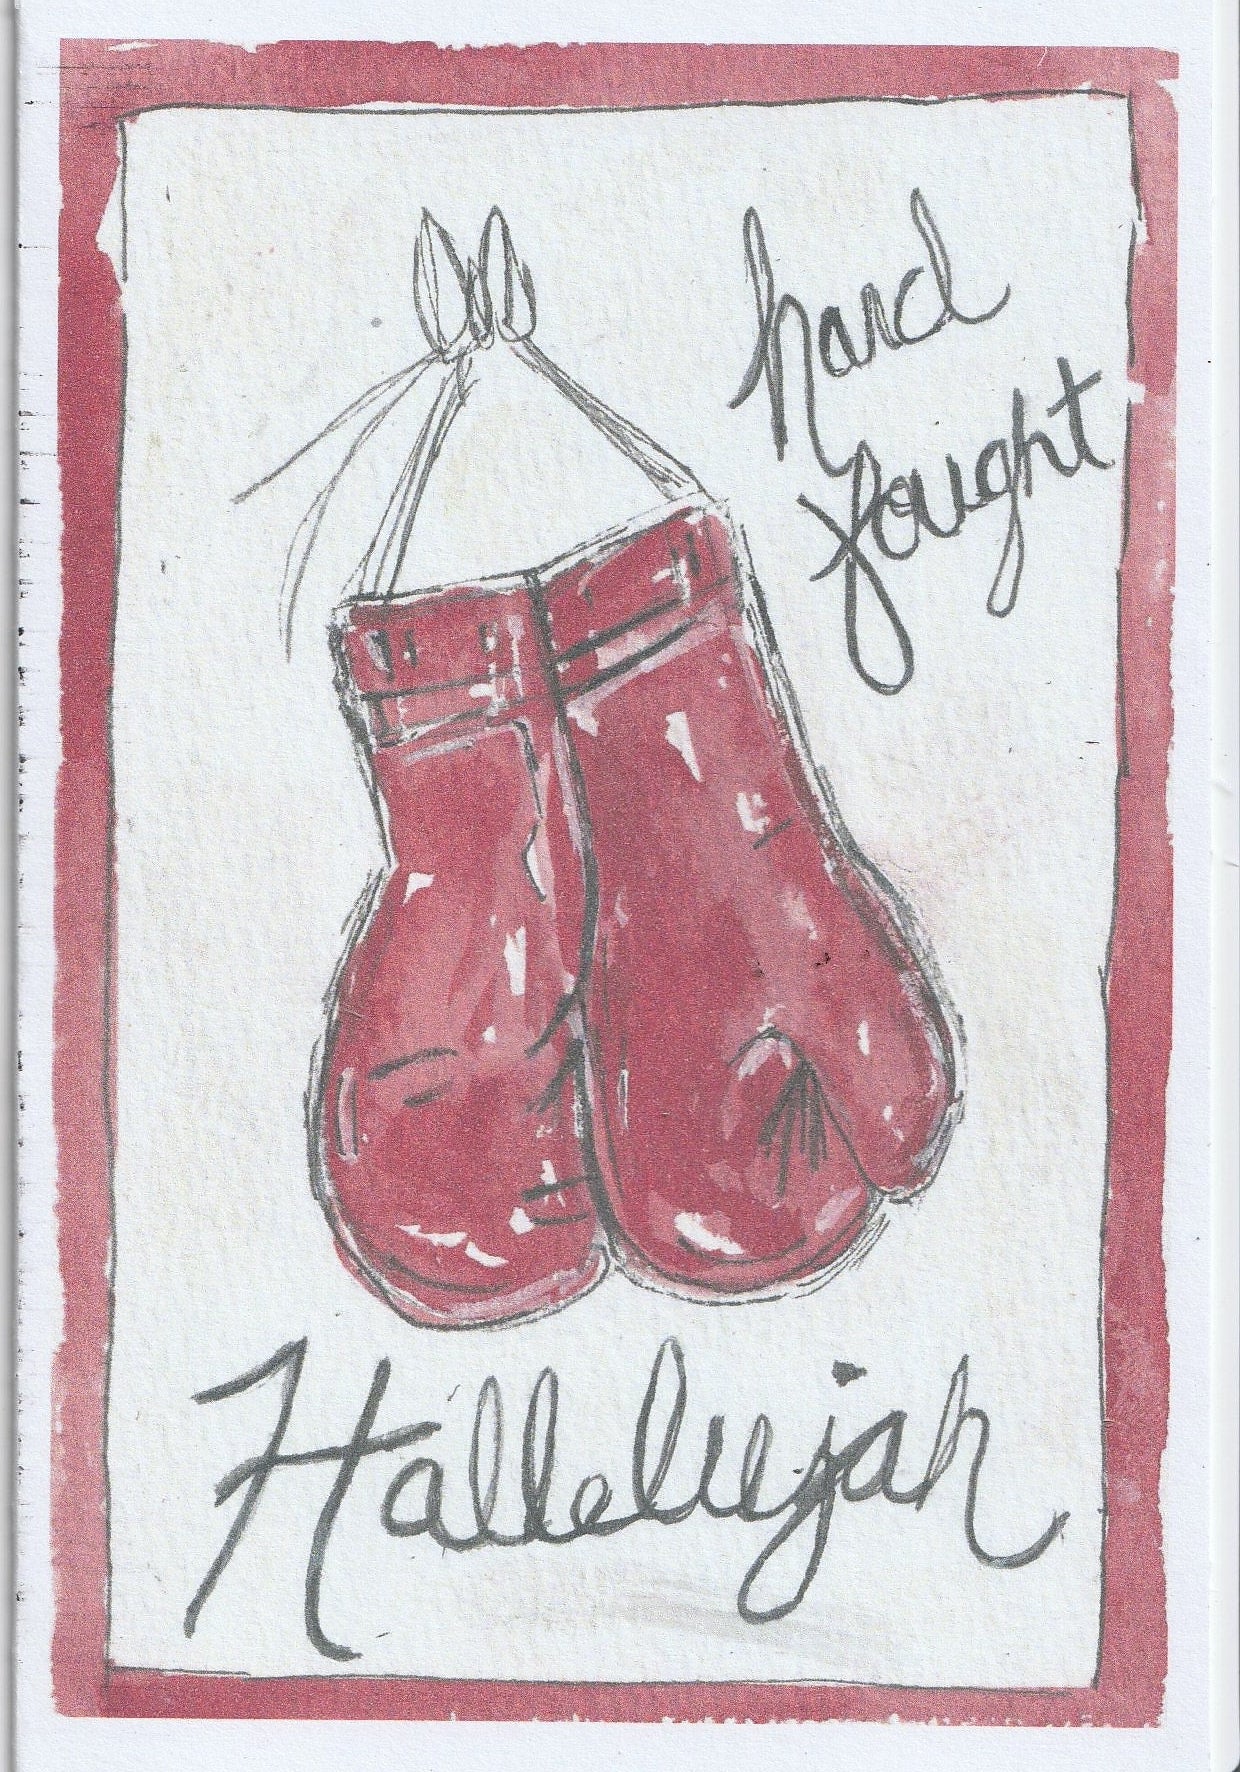 hard
fought
Hallelujah